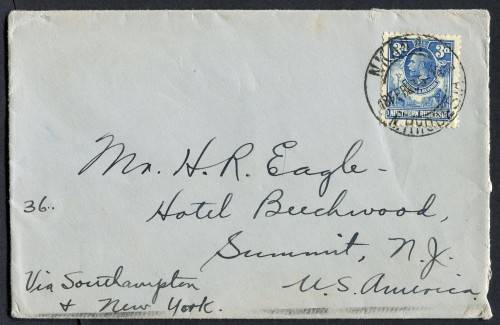 3d 3d
NORTHERN RHODESIA
Mr. H. R. Eagle-
Hotel Beechwood,
36..
Summit, N. J.
U. S. America.
Via Southampton
& New York.